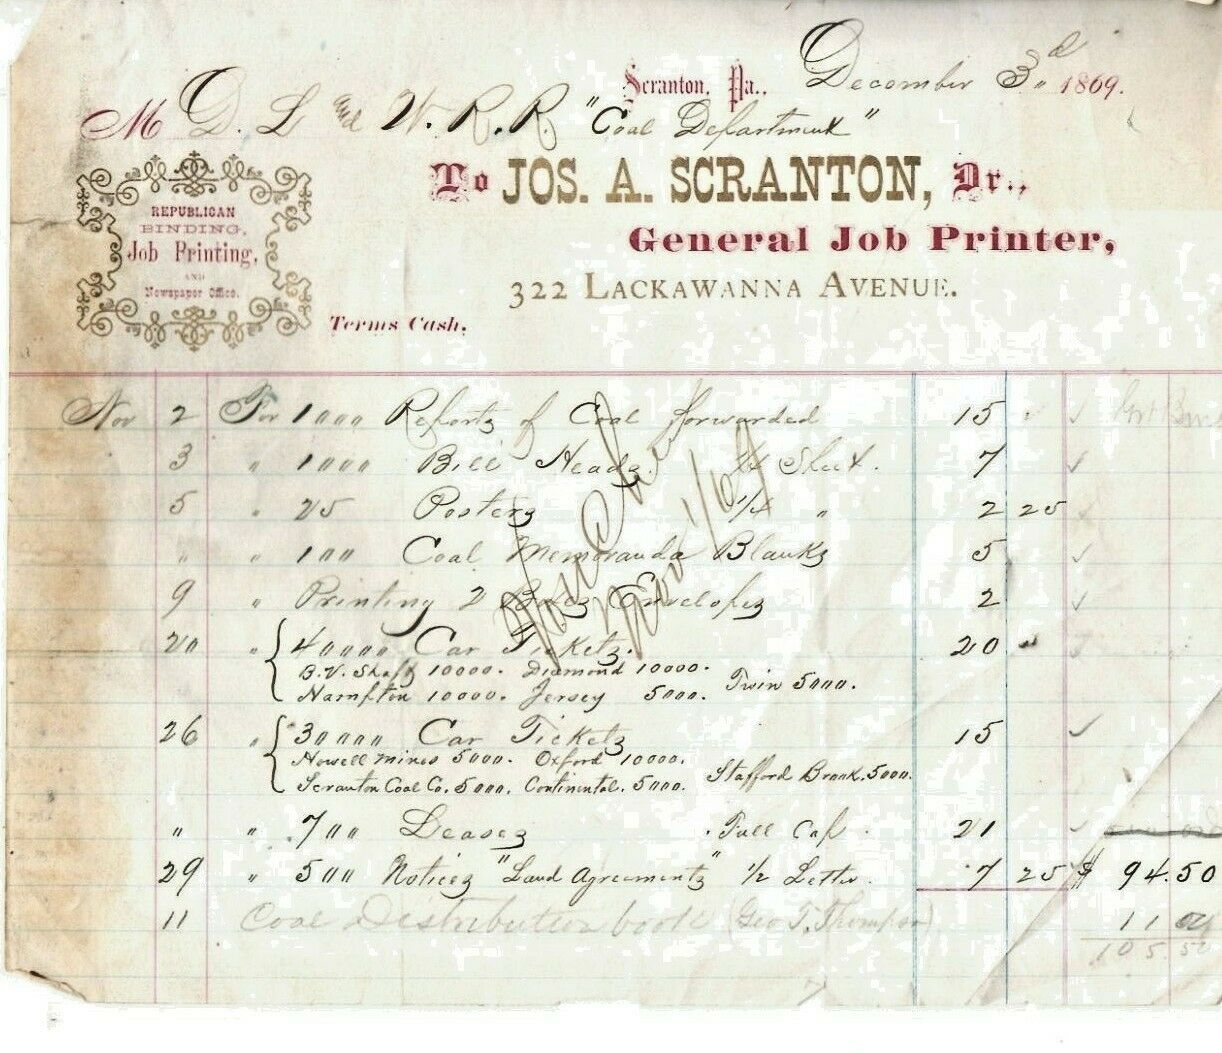 Scranton, Pa., December 3d 1869.
M D. L and W. R. R. "Coal Department"
To JOS. A. SCRANTON, Dr.,
General Job Printer,
322 LACKAWANNA AVENUE.
REPUBLICAN
BINDING,
Job Printing,
AND
Newspaper Office.
Terms Cash.
Nov 2 For 1000 Reports of Coal forwarded 15
3 " 1000 Bill Heads 1/4 Sheet. 7
5 " 25 Posters 1/4 " 2 25
" " 100 Coal Memoranda Blanks 5
9 " Printing 2 Boxes Envelopes 2
20 " 40000 Car Tickets. 20
B.V. Shaft 10000. Diamond 10000.
Hampton 10000. Jersey 5000. Twin 5000.
26 " 30000 Car Tickets 15
Howell Mines 5000. Oxford 10000.
Scranton Coal Co. 5000. Continental. 5000. Stafford Brook. 5000.
" " 700 Leases Full Cap 21
29 " 500 Notices "Land Agreements" 1/2 Letter. 7 25 $ 94.50
11 Coal Distribution book (Geo T. Thompson) 11
105.50
Nov 1/69